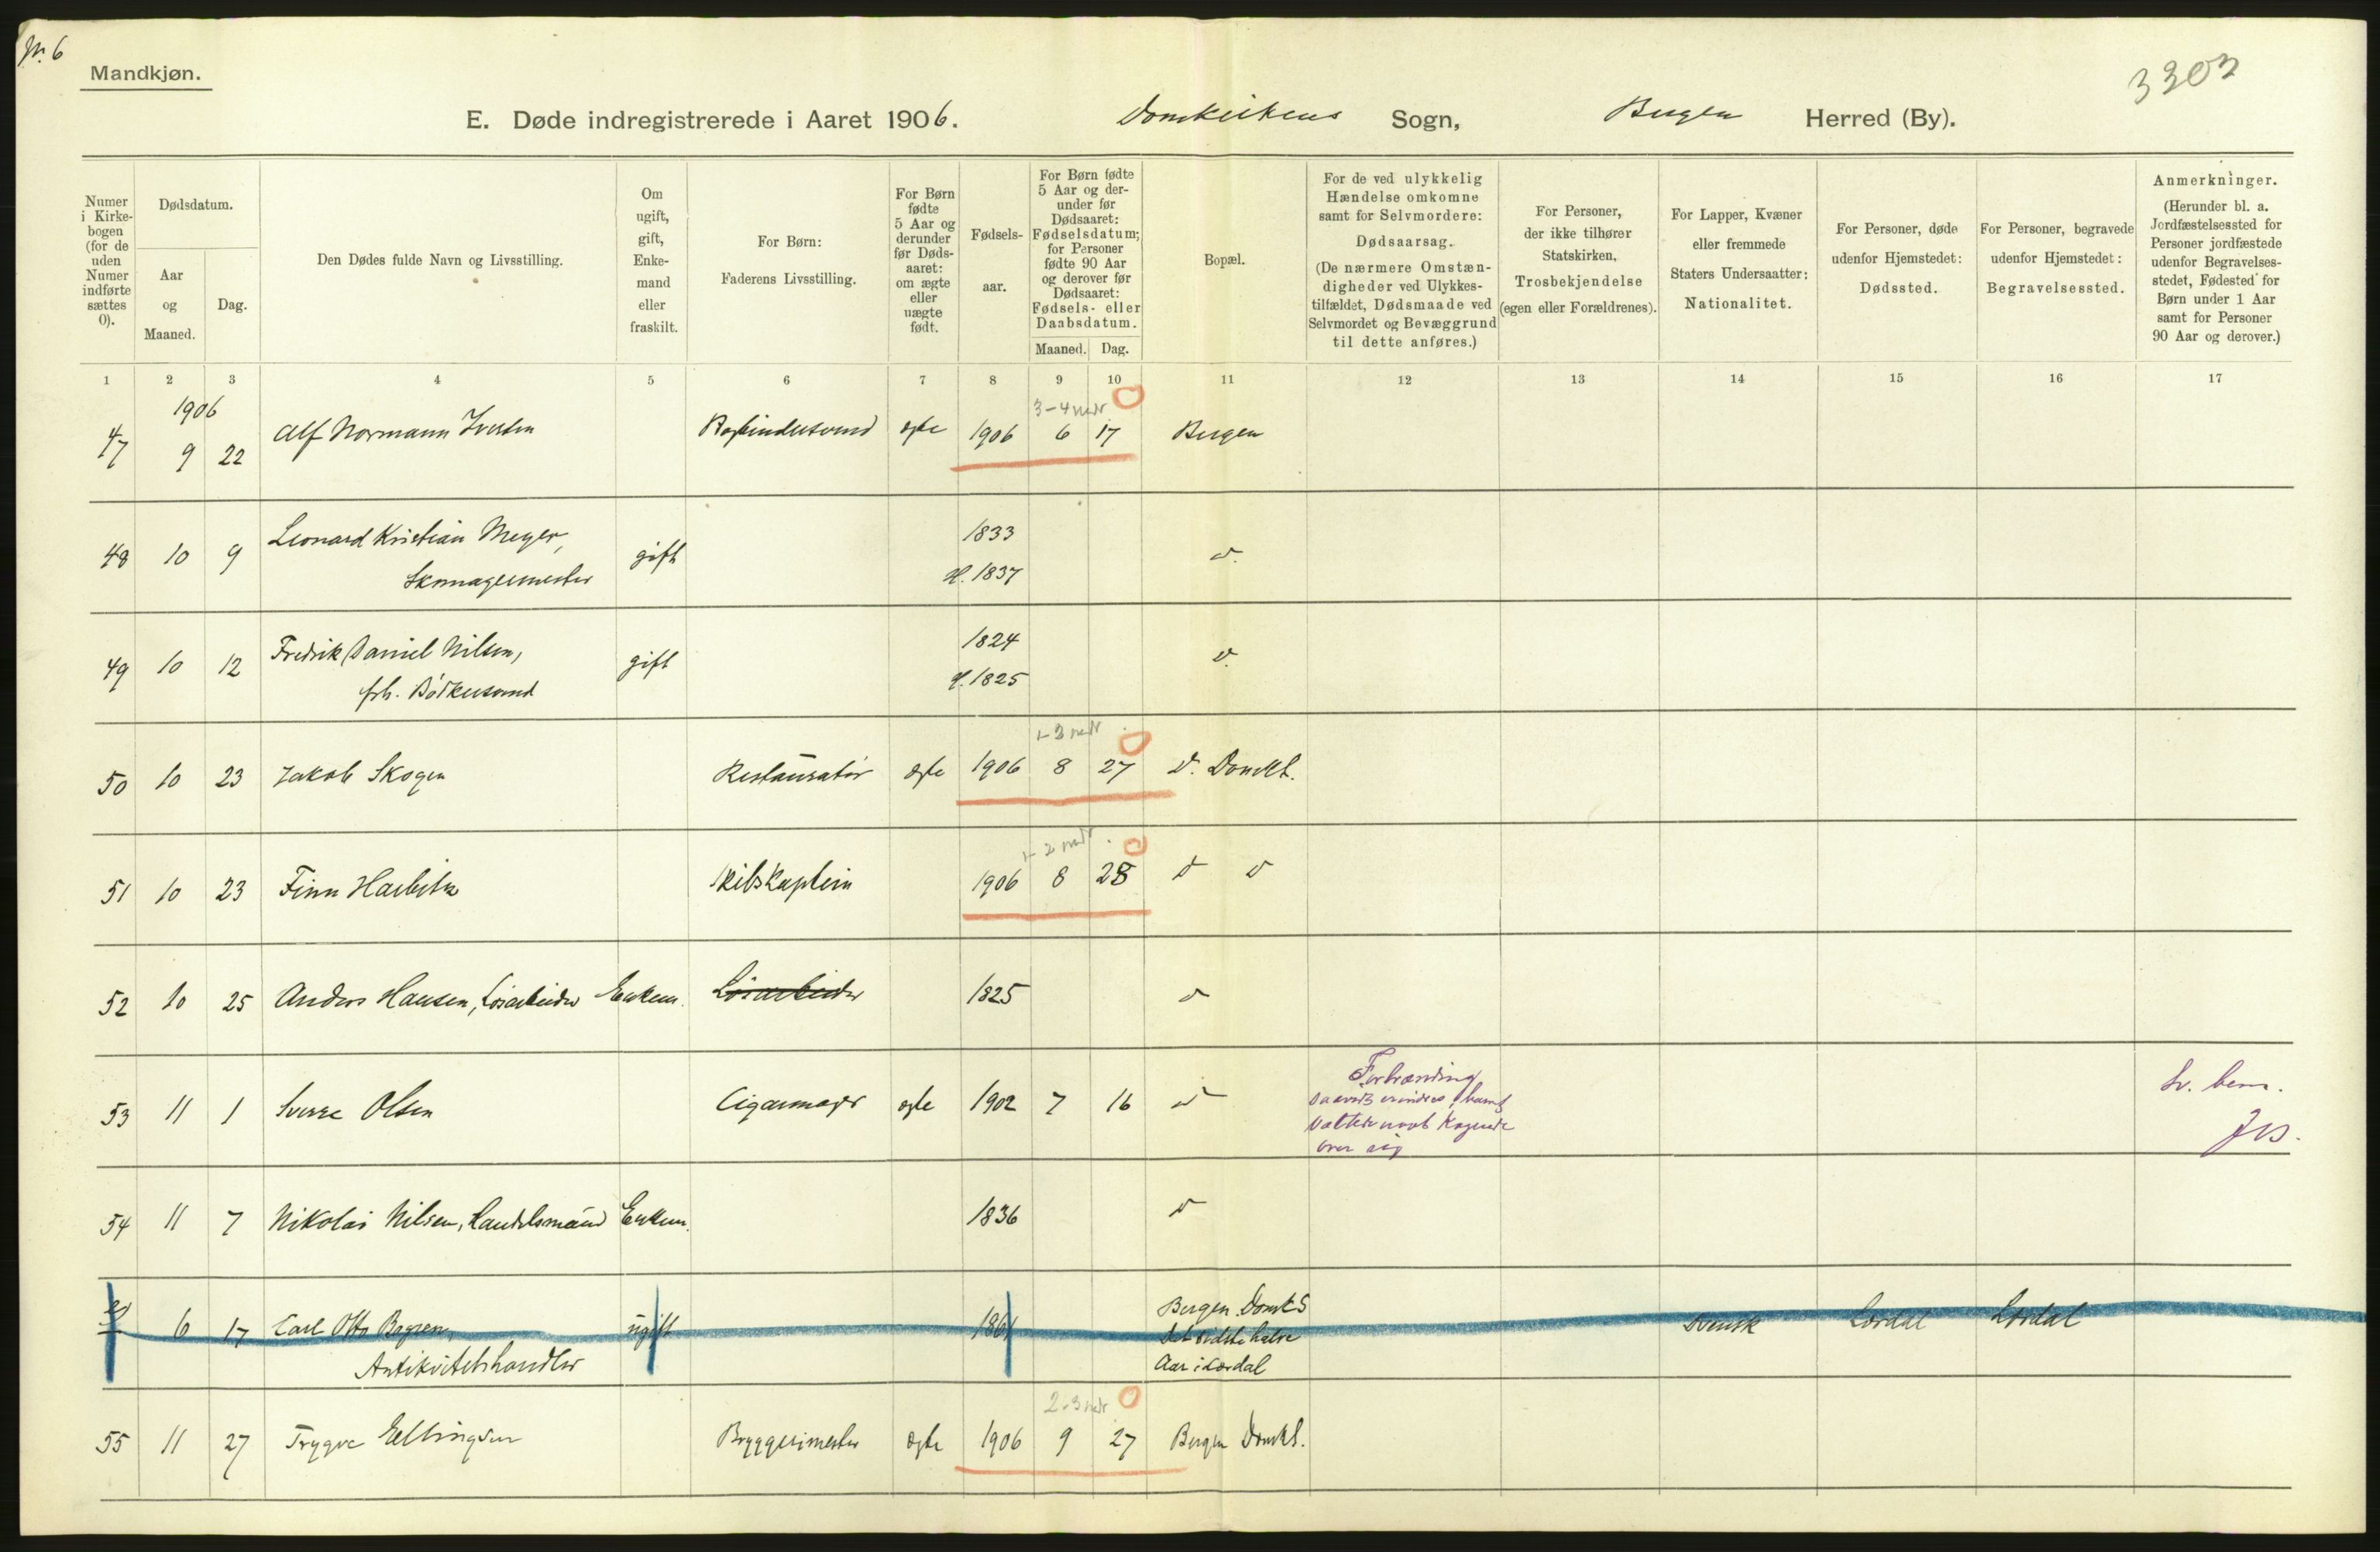 No. 6
Mandkjøn.
3303
E. Døde indregistrerede i Aaret 1906. Domkirkens Sogn, Bergen Herred (By).
Numer i Kirke-bogen (for de uden Numer indførte sættes 0).
Dødsdatum.
Aar og Maaned.
Dag.
Den Dødes fulde Navn og Livsstilling.
Om ugift, gift, Enke-mand eller fraskilt.
For Børn:
Faderens Livsstilling.
For Børn fødte 5 Aar og derunder før Døds-aaret: om ægte eller uægte født.
Fødsels-aar.
For Børn fødte 5 Aar og der-under før Dødsaaret: Fødselsdatum; for Personer fødte 90 Aar og derover før Dødsaaret: Fødsels- eller Daabsdatum.
Maaned. Dag.
Bopæl.
For de ved ulykkelig Hændelse omkomne samt for Selvmordere:
Dødsaarsag.
(De nærmere Omstæn-digheder ved Ulykkes-tilfældet, Dødsmaade ved Selvmordet og Bevæggrund til dette anføres.)
For Personer, der ikke tilhører Statskirken,
Trosbekjendelse
(egen eller Forældrenes).
For Lapper, Kvæner eller fremmede Staters Undersaatter:
Nationalitet.
For Personer, døde udenfor Hjemstedet:
Dødssted.
For Personer, begravede udenfor Hjemstedet:
Begravelsessted.
Anmerkninger.
(Herunder bl. a. Jordfæstelsessted for Personer jordfæstede udenfor Begravelses-stedet, Fødested for Børn under 1 Aar samt for Personer 90 Aar og derover.)
1 2 3 4 5 6 7 8 9 10 11 12 13 14 15 16 17
1906
3-4 mdr
47 9 22 Alf Normann Iversen Bogbindersvend ægte 1906 6 17 Bergen
48 10 9 Leonard Kristian Meyer, gift 1833 d.
Skomagermester H. 1837
49 10 12 Fredrik Daniel Nilsen, gift 1824 d.
frh. Bødkersvend H. 1825
1-2 mdr
50 10 23 Jakob Skogen Restauratør ægte 1906 8 27 d. Domk S.
1-2 mdr
51 10 23 Finn Harbitz Skibskaptein 1906 8 28 d d
52 10 25 Anders Hansen, Løsarbeider Enkem. Løsarbeider 1825 d
53 11 1 Sverre Olsen Cigarmager ægte 1902 7 16 d Forbrænding
over sig
Sv. bem.
54 11 7 Nikolai Nilsen, Handelsmand Enkem. 1836 d
6 17 Carl Otto ugift 1861 Bergen Domk S Svensk Lærdal Lærdal
Det sidste halve
Antikvitetshandler Aar i Lærdal
2-3 mdr
55 11 27 Trygve Ellingsen Bryggerimester ægte 1906 9 27 Bergen Domk S.